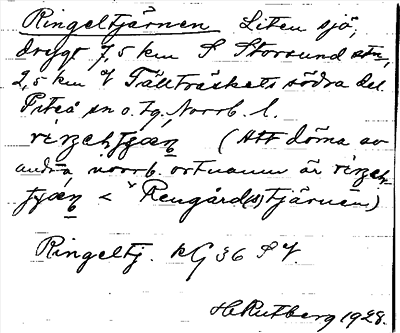 Ringeltjärnen Liten sjö,
drygt 7,5 km S Storsund stn,
2,5 km V Tällträskets södra del.
Piteå sn o. tg. Norrb. l.
(Att döma av
andra norrb. ortnamn är
< *Rengård(s)tjärnen)
Ringeltj. kG 36 S V.
H Rutberg 1928.